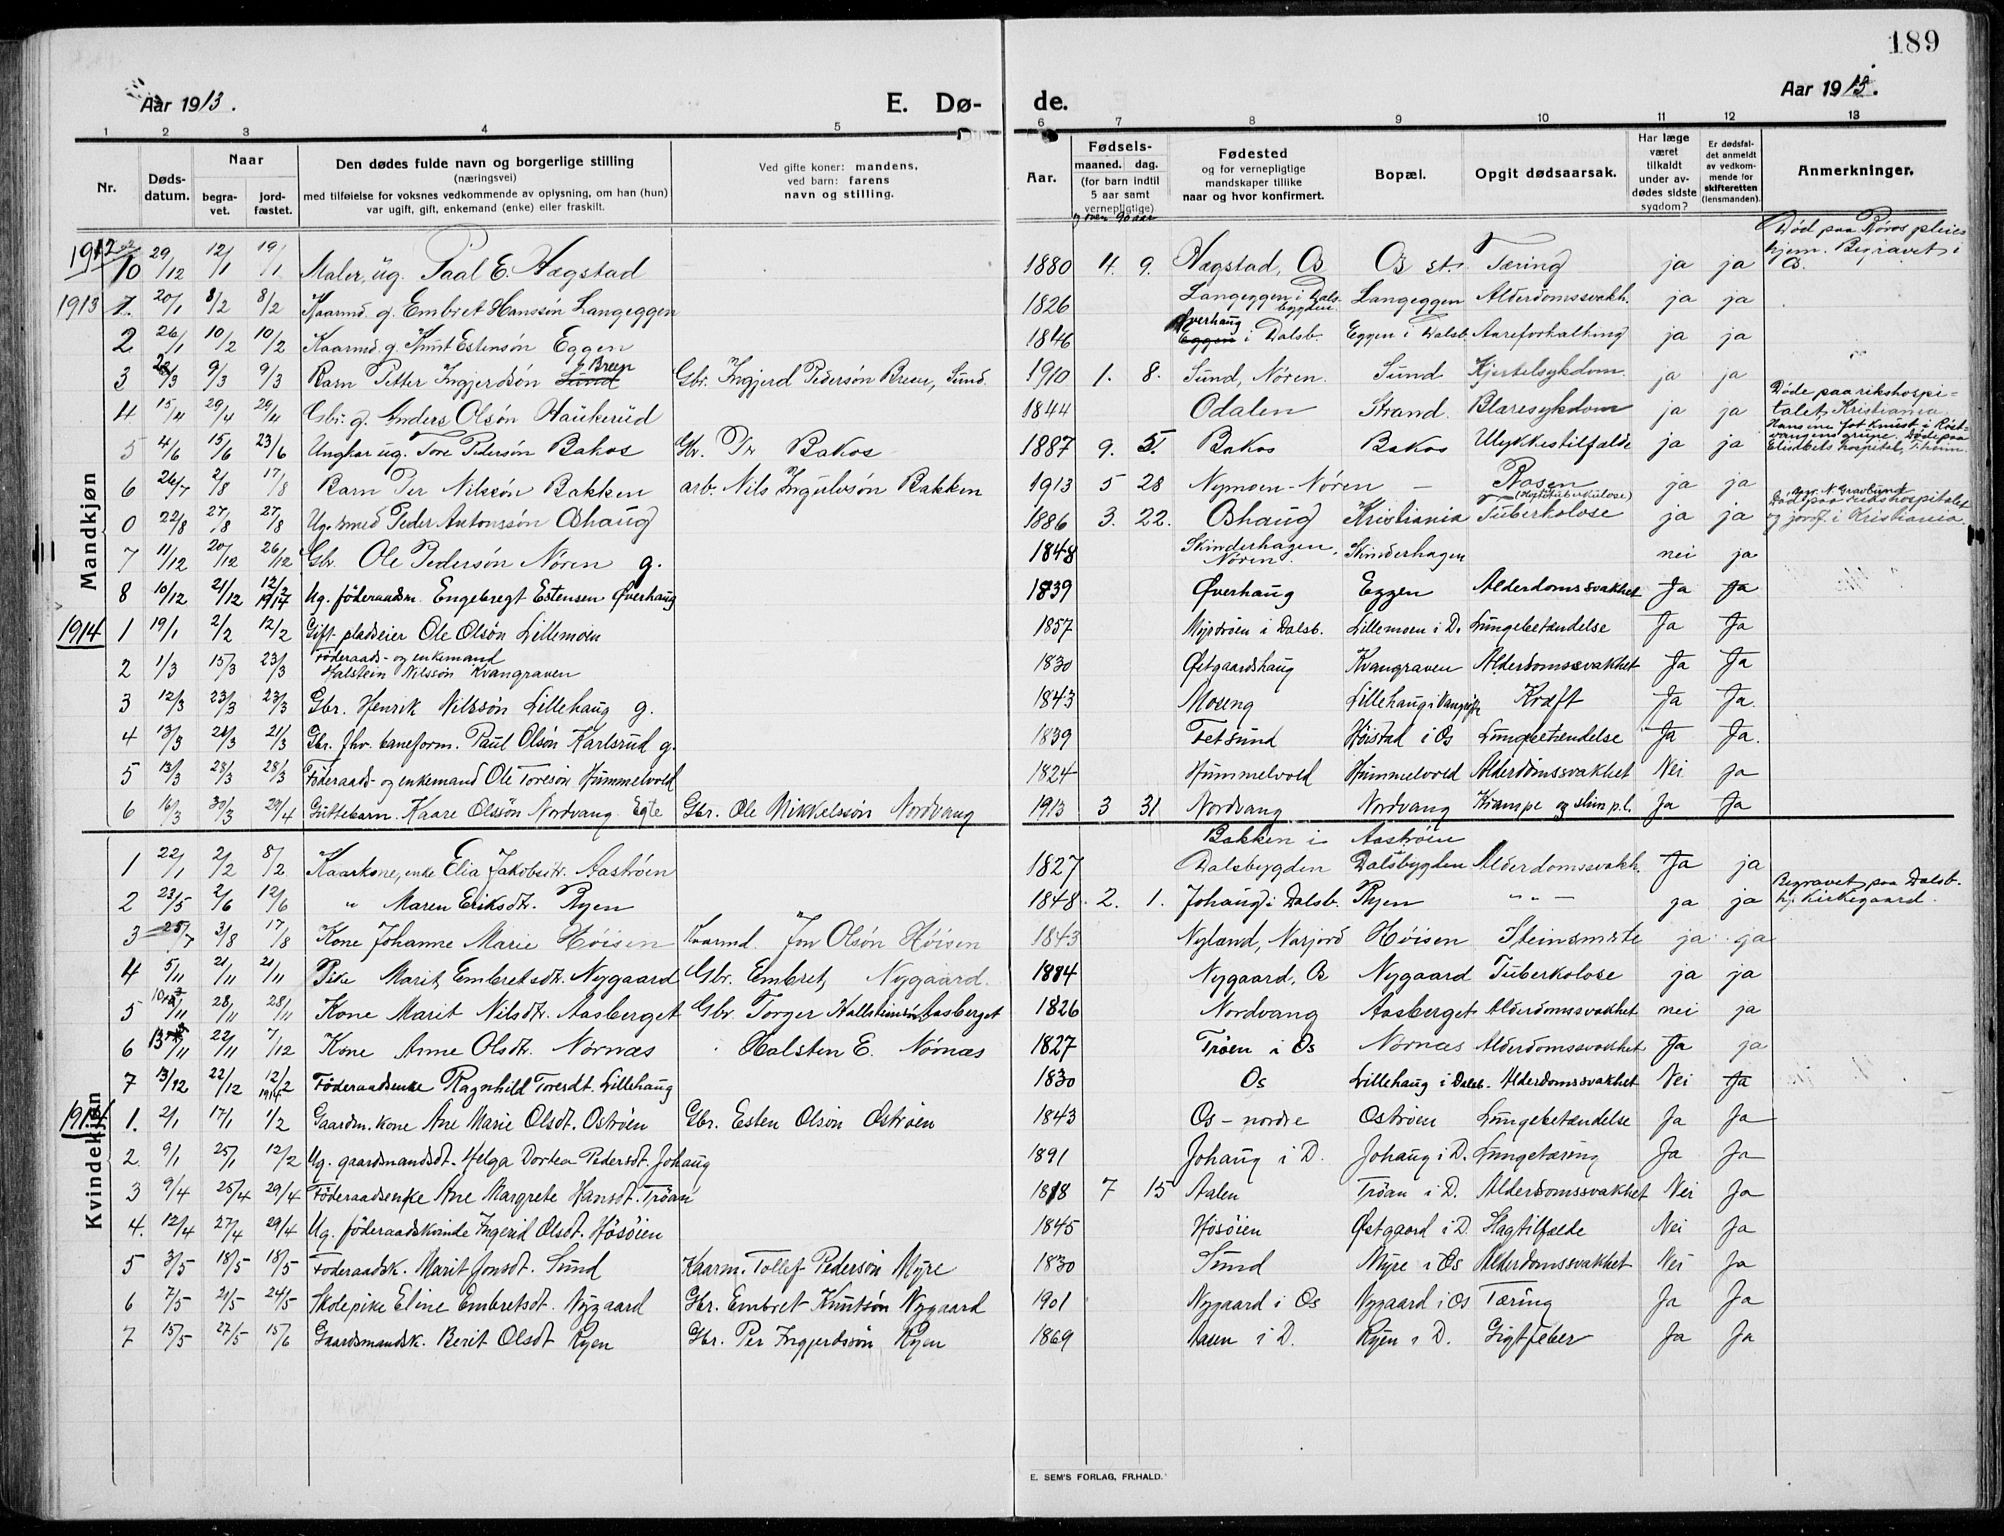 189
Aar 1913.
E. Dø-
de.
Aar 1913.
1 2 3 4 5 6 7 8 9 10 11 12 13
Nr.
Døds-
datum.
Naar
begra-
vet.
jord-
fæstet.
Den dødes fulde navn og borgerlige stilling
(næringsvei)
med tilføielse for voksnes vedkommende av oplysning, om han (hun)
var ugift, gift, enkemand (enke) eller fraskilt.
Ved gifte koner: mandens,
ved barn: farens
navn og stilling.
Aar.
Fødsels-
maaned. dag.
(for barn indtil
5 aar samt
vernepligtige)
og over 90 aar
Fødested
og for vernepligtige
mandskaper tillike
naar og hvor konfirmert.
Bopæl.
Opgit dødsaarsak.
Har læge
været
tilkaldt
under av-
dødes sidste
sygdom?
Er dødsfal-
det anmeldt
av vedkom-
mende for
skifteretten
(lensmanden).
Anmerkninger.
Mandkjøn
1912 10 29/12 12/1 19/1 Maler, ug. Paal E. Hægstad 1880 4. 9. Hægstad, Os Os st. Tæring ja ja Død paa Röros pleie-
hjem. Begravet i
Os.
1913 1. 20/1 8/2 8/2 Kaarmd. g. Embret Hanssön Langeggen 1826 Langeggen i Dals-
bygden Langeggen Alderdomssvakh. ja ja
2 26/1 10/2 10/2 Kaarmd. g. Knut Estensön Eggen 1846 Øverhaug
Eggen i Dalsb. Eggen i Dalsb. Aareforkalkning ja ja
3 28/3 9/3 9/3 Barn Petter Ingjerdsön Sund Breen Gbr. Ingjerd Pedersön Breen, Sund. 1910 1. 8. Sund, Nören. Sund Kjertelsykdom. ja ja
4 15/4 29/4 29/4 Gbr. g. Anders Olsön Haukerud 1844 Odalen Strand. Blæresykdom ja ja Døde paa rikshospi-
talet, Kristiania
5 4/6 15/6 23/6 Ungkar ug. Tore Pedersön Bakos Gbr. Pr Bakos 1887 9. 5. Bakos Bakos Ulykkestilfælde ja ja Hans ene fot knust i Röst-
vangens grube. Döde paa
Elisabets hospital, Thjem.
6 26/7 2/8 17/8 Barn Per Nilssön Bakken arb. Nils Ingulvsön Bakken 1913 5 28 Nymoen-Nören — Rosen ja ja
0 22/8 27/8 27/8 Ug. smed Peder Antonssön Oshaug 1886 3. 22. Oshaug Kristiania Tuberkolose ja ja Død paa rikshospitalet
og jordf. i Kristiania.
7 11/12 20/12 26/12 Gbr. Ole Pedersön Nören g. 1848 Skinderhagen,
Nören. Skinderhagen nei ja
8 10/12 21/12 12/2 1914 Ug. föderaadsm. Engebregt Estensen Øverhaug 1839 Øverhaug Eggen Alderdomssvakhet Ja Ja
1914 1 19/1 2/2 12/2 Gift pladseier Ole Olsön Lillemoen 1857 Myrdröen i Dalsb. Lillemoen i D. Lungebetændelse Ja Ja
2 1/3 15/3 23/3 Föderaads- og enkemand
Halstein Nilssön Kvangraven 1830 Østgaardshaug Kvangraven Alderdomssvakhet Ja Ja
3 12/3 23/3 23/3 Gbr. Henrik Nilssön Lillehaug g. 1843 Moseng Lillehaug i Vangröft Kræft Ja Ja.
4 13/3 21/3 21/3 Gbr. fhv. baneform. Paul Olsön Karlsrud g. 1839 Fetsund Høistad i Os Lungebetændelse Ja Ja.
5 13/3 28/3 28/3 Föderaads- og enkemand Ole Toresön Hummelvold 1824 Hummelvold Hummelvold Alderdomssvakhet Nei Ja
6 16/3 30/3 29/4 Guttebarn. Kaare Olssön Nordvang. Egte Gbr. Ole Mikkelssön Nordvang 1913 3 31 Nordvang Nordvang Krampe og slim p.l. Ja Ja
Kvindekjøn
1 22/1 2/2 8/2 Kaarkone, enke Elia Jakobsdtr. Aaströen 1827 Bakken i
Dalsbygden Aaströen
Dalsbygden Alderdomssvakh. Ja ja
2 23/5 2/6 12/6 " Maren Eriksdtr. Ryen 1848 2. 1. Johaug i Dalsb. Ryen " - — ja ja Begravet paa Dalsb.
kirkegaard.
3 25/7 3/8 17/8 Kone Johanne Marie Höisen Kaarmd. Jon Olsön Höisen 1843 Nyland, Narjord Höisen Steinsmerte ja ja
4 5/11 21/11 21/11 Pike Marit Embretsdt. Nygaard Gbr. Embret Nygaard. 1884 Nygaard, Os Nygaard Tuberkolose ja ja
5 28/11 28/11 Kone Marit Nilsdtr. Aasberget Gbr Torger Hallsteinsön Aasberget 1826 Nordvang Aasberget Alderdomssvakhet nei ja
6 13/11 22/11 7/12 Kone Anne Olsdtr. Nörnæs Halsten E. Nörnæs 1827 Tröen i Os Nörnæs Alderdomssvakhet Ja ja
7 13/12 22/12 12/2 1914 Föderaadsenke Ragnhild Toresdt. Lillehaug 1830 Os Lillehaug i Dalsb. Alderdomssvakhet Nei Ja
1914 1. 2/1 17/1 1/2 Gaardm. kone Ane Marie Olsdt. Oströen Gbr. Esten Olsön Oströen 1843 Os - nordre Oströen Lungebetændelse Ja Ja
2. 9/1 25/1 12/2 Ug. gaardmandsdt. Helga Dortea Pedersdt. Johaug 1891 Johaug i D. Johaug i D. Lungetæring Ja Ja
3 9/4 25/4 29/4 Föderaadsenke Ane Margrete Hansdt. Tröan 1818 7 15 Aalen Tröan i D. Alderdomssvakhet Nei Ja
4. 12/4 27/4 29/4 Ug. föderaadskvinde Ingerid Olsdt. Hösöien 1845 Hösöien Østgaard i D. Slagtilfælde Nei Ja
5 3/5 18/5 18/5 Föderaadsk. Marit Jonsdt. Sund Kaarm. Tollef Pedersön Myre 1830 Sund Myre i Os Alderdomssvakhet Nei Ja
6 7/5 21/5 24/5 Skolepike Eline Embretsdt. Nygaard Gbr. Embret Knutsön Nygaard 1901 Nygaard i Os Nygaard i Os Tæring Ja Ja
7 15/5 27/5 15/6 Gaardsmandsk. Berit Olsdt Ryen Gbr. Per Ingjerdssön Ryen 1869 Aaen i D. Ryen i D. Gigtfeber Ja Ja
E. SEM'S FORLAG, FR.HALD.